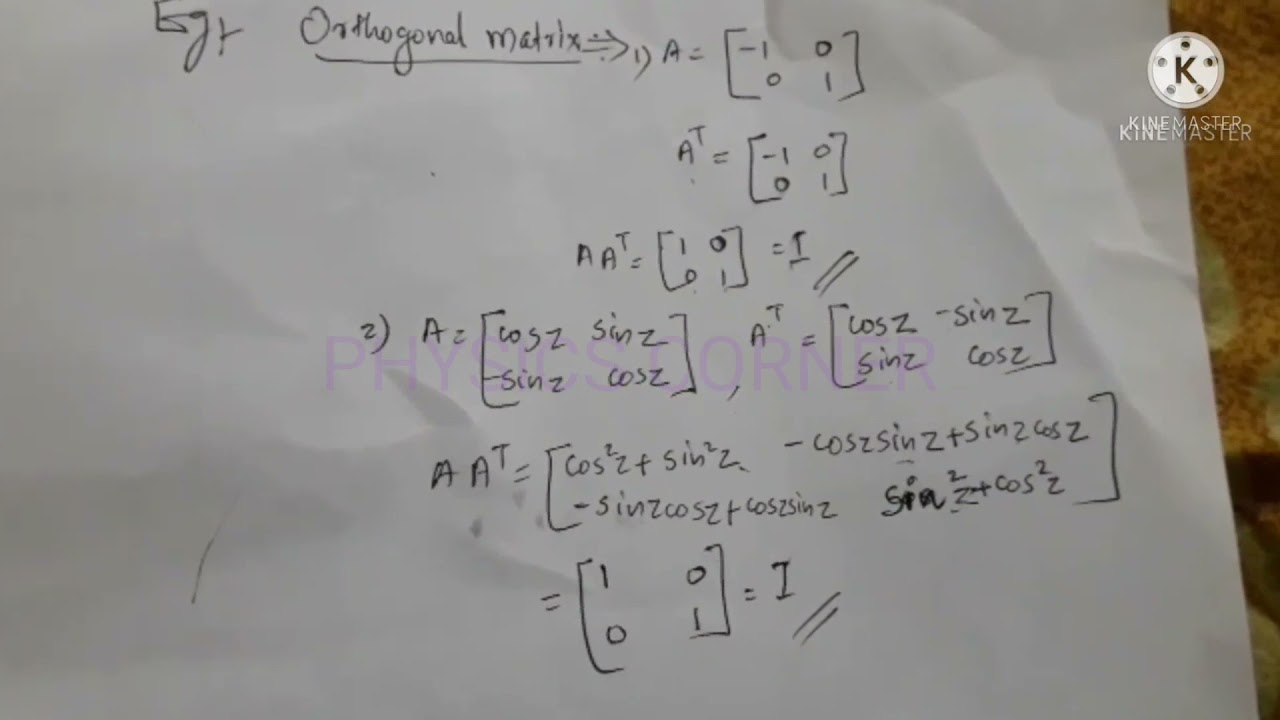 Eg:- Orthogonal matrix ⇒ 1) A = [-1 0
0 1]
Aᵀ = [-1 0
0 1]
A Aᵀ = [1 0
0 1] = I //
2) A = [cos z sin z
-sin z cos z] , Aᵀ = [cos z -sin z
sin z cos z]
A Aᵀ = [cos²z + sin²z -cos z sin z + sin z cos z
-sin z cos z + cos z sin z sin²z + cos²z]
= [1 0
0 1] = I //
PHYSICS CORNER
K
KINEMASTER
KINEMASTER